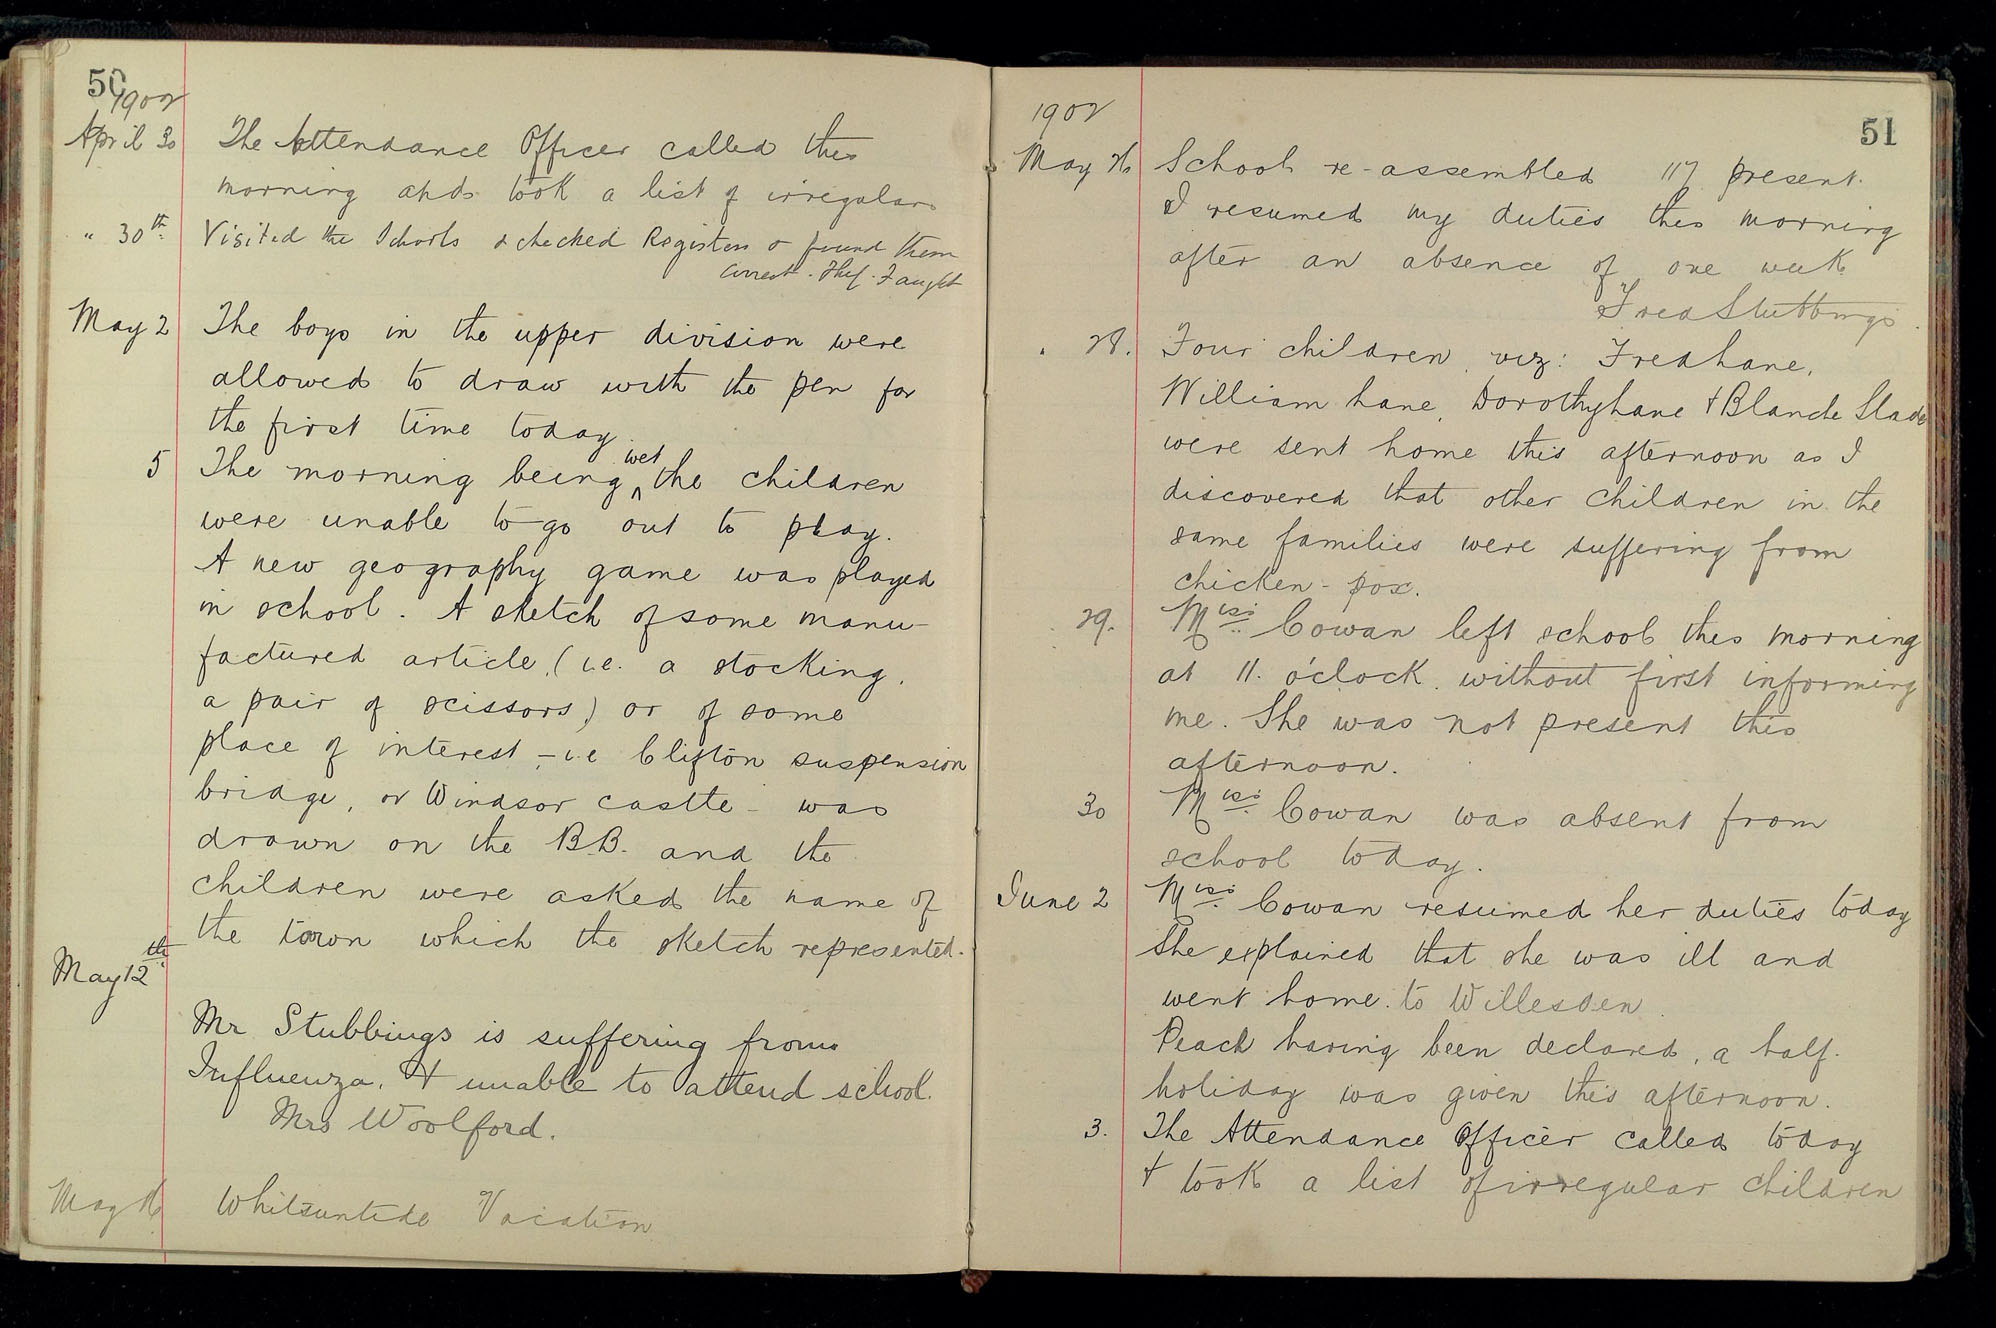 50
1902
April 30 The Attendance Officer called this
morning and took a list of irregulars
" 30th. Visited the Schools & checked Registers & found them
correct. Thos. Faught
May 2 The boys in the upper division were
allowed to draw with the pen for
the first time today.
5 The morning being wet the children
were unable to go out to play.
A new geography game was played
in school. A sketch of some manu-
factured article, (i.e. a stocking,
a pair of scissors,) or of some
place of interest – i.e Clifton suspension
bridge, or Windsor castle – was
drawn on the B.B. and the
children were asked the name of
the town which the sketch represented.
May 12th
Mr Stubbings is suffering from
Influenza, & unable to attend school.
Mrs Woolford.
May 16 Whitsuntide Vacation
51
1902
May 26 School re-assembled 117 present.
I resumed my duties this morning
after an absence of one week
Fred Stubbings.
" 28. Four children, viz: Fred Lane,
William Lane, Dorothy Lane & Blanche Slade
were sent home this afternoon as I
discovered that other children in the
same families were suffering from
chicken-pox.
29. Miss Cowan left school this morning
at 11. o'clock without first informing
me. She was not present this
afternoon.
30 Miss Cowan was absent from
school today.
June 2 Miss Cowan resumed her duties today
She explained that she was ill and
went home to Willesden.
Peace having been declared, a half-
holiday was given this afternoon.
3. The Attendance Officer called today
& took a list of irregular children